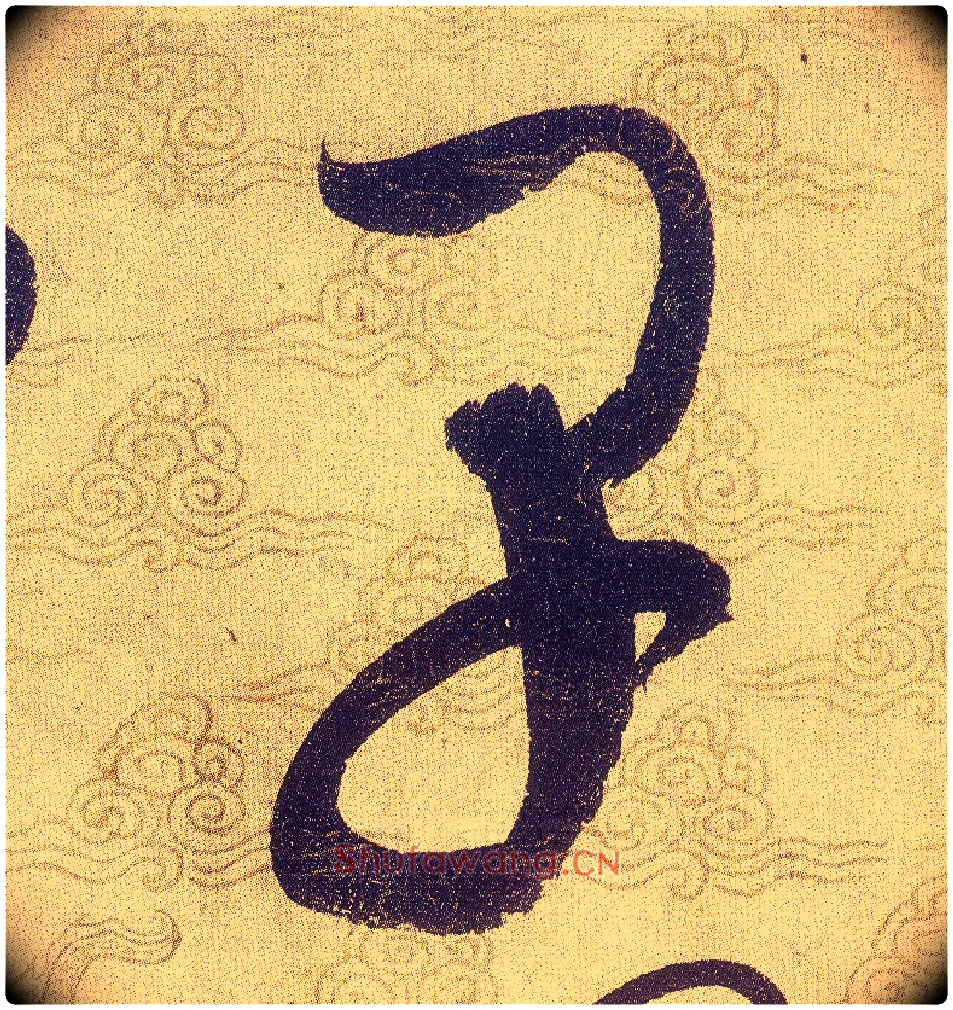 子
Shufawang.CN